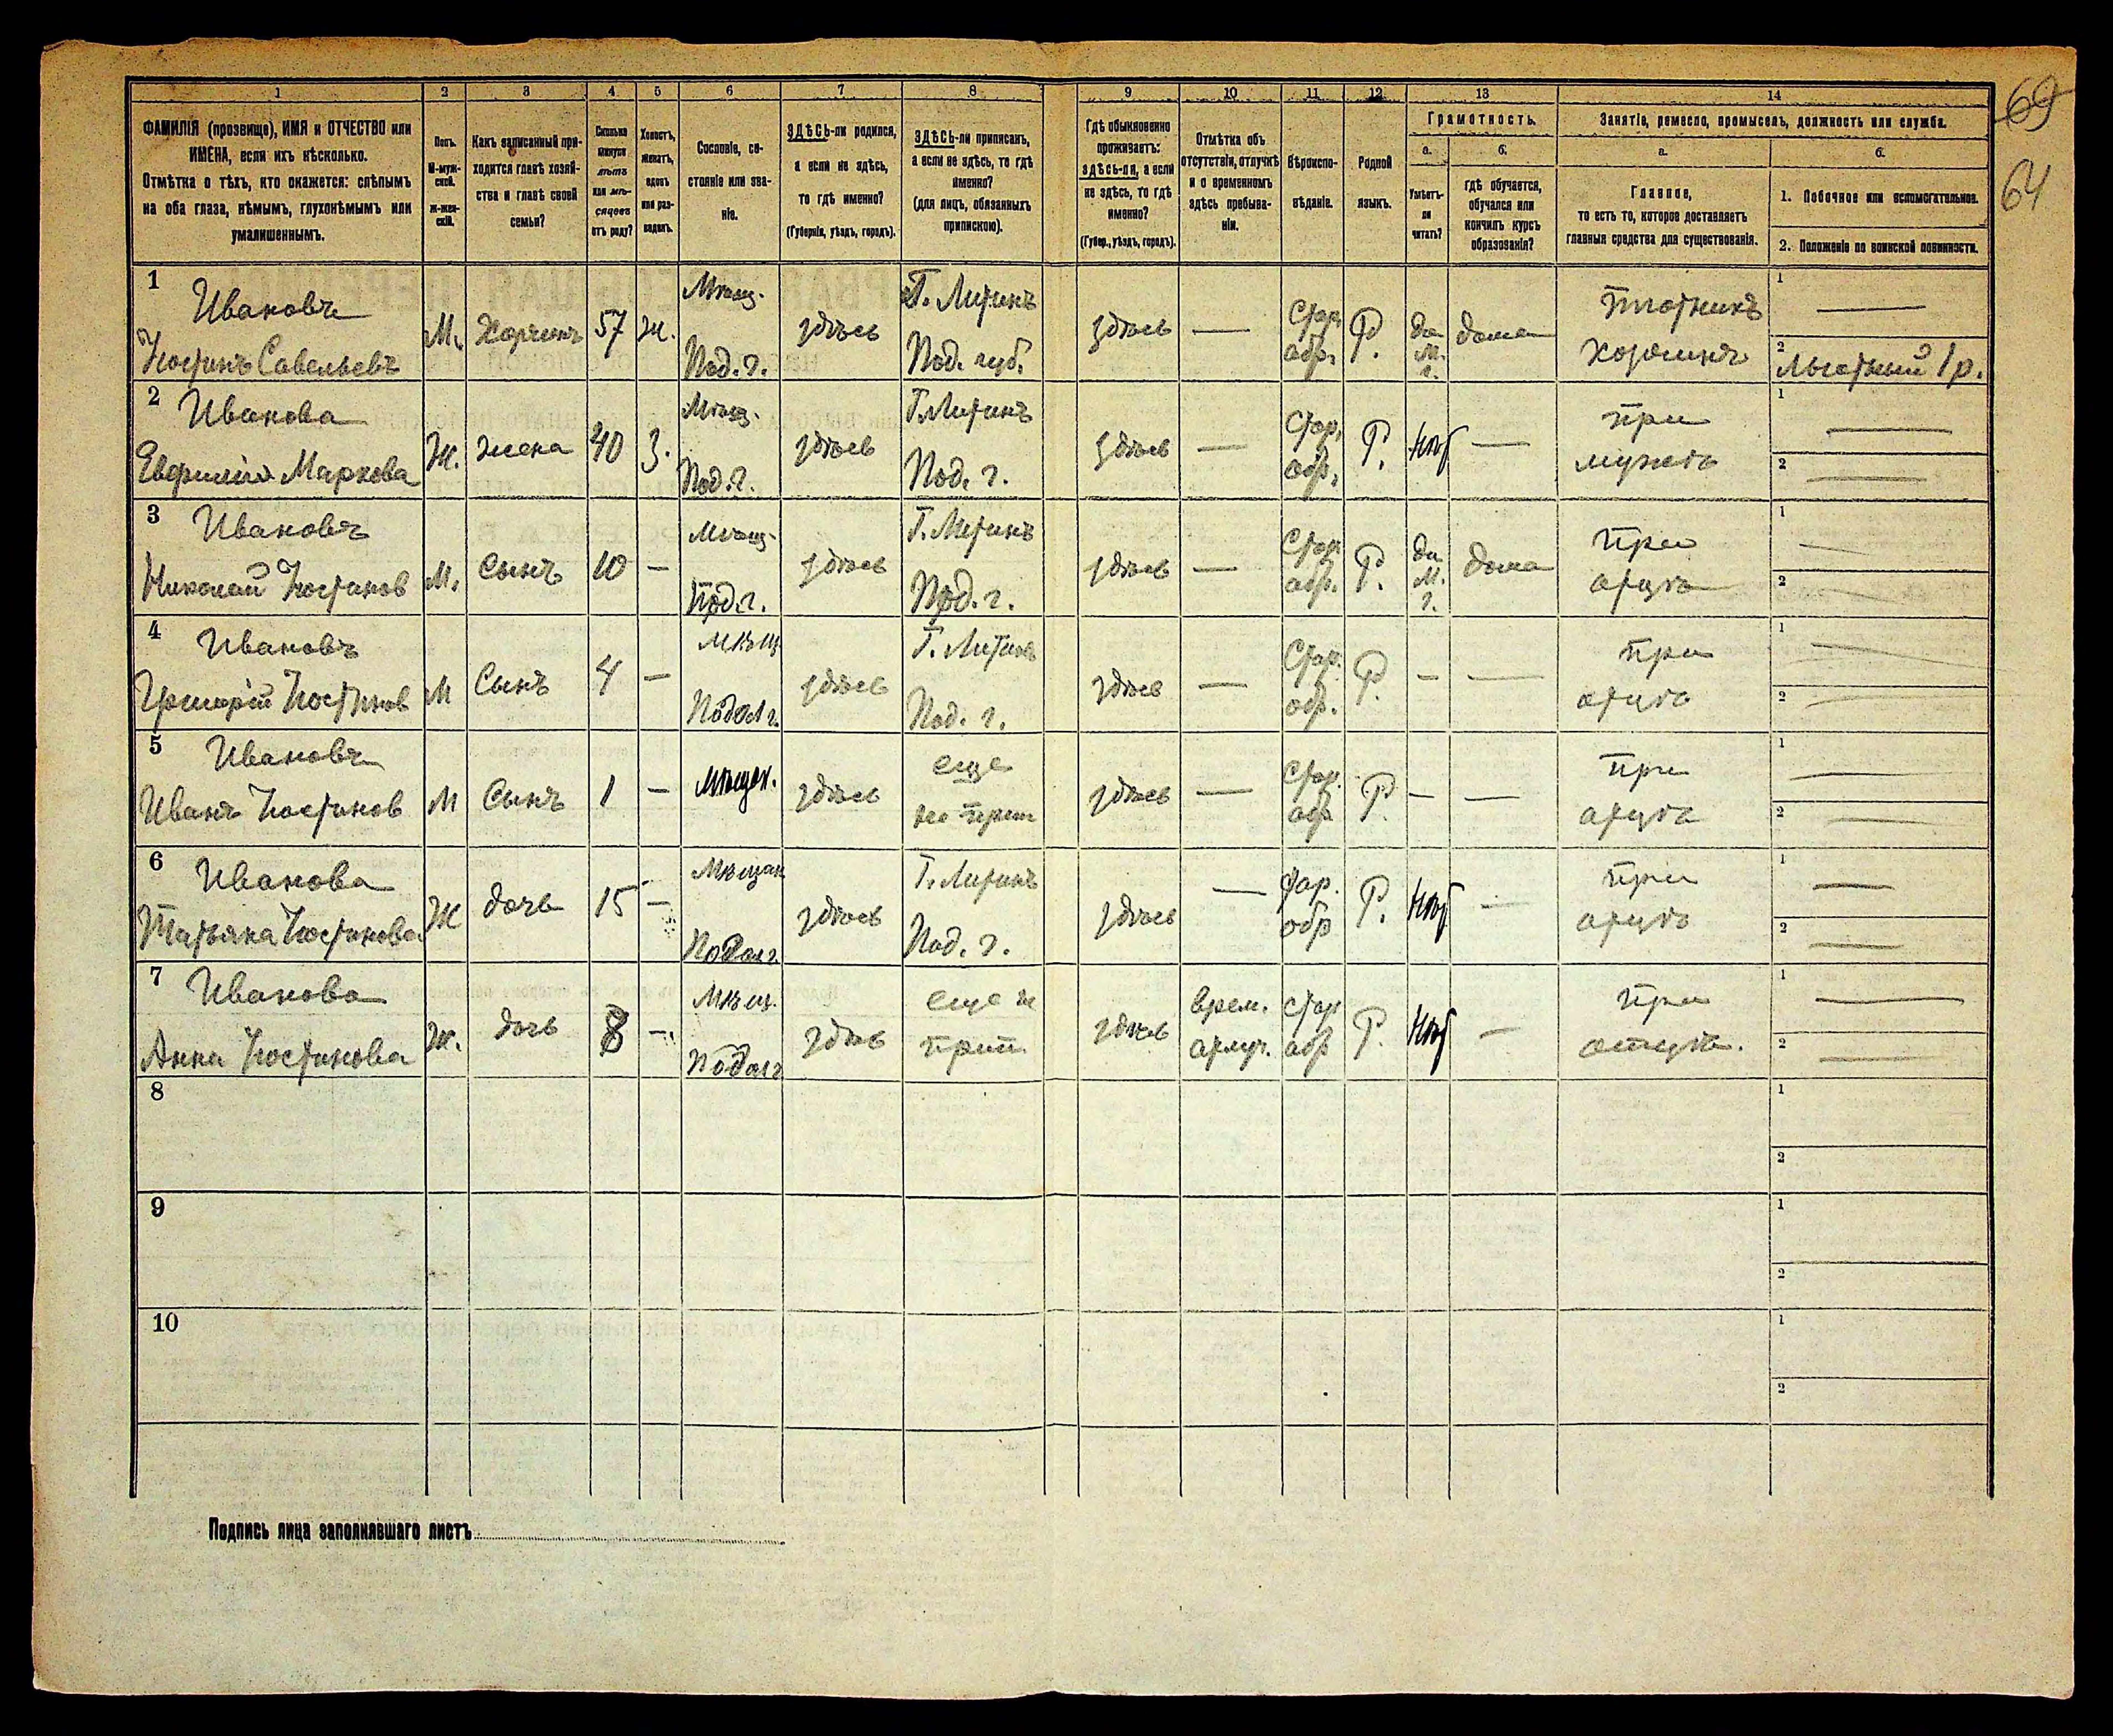 69
64
1 2 3 4 5 6 7 8 9 10 11 12 13 14
ФАМИЛІЯ (прозвище), ИМЯ и ОТЧЕСТВО или
ИМЕНА, если ихъ нѣсколько.
Отмѣтка о тѣхъ, кто окажется: слѣпымъ
на оба глаза, нѣмымъ, глухонѣмымъ или
умалишеннымъ.
Полъ.
М-муж-
ской.
ж-жен-
скій.
Какъ записанный при-
ходится главѣ хозяй-
ства и главѣ своей
семьи?
Сколько
минуло
лѣтъ
или мѣ-
сяцевъ
отъ роду?
Холостъ,
женатъ,
вдовъ
или раз-
веденъ.
Сословіе, со-
стояніе или зва-
ніе.
ЗДѢСЬ-ли родился,
а если не здѣсь,
то гдѣ именно?
(Губернія, уѣздъ, городъ).
ЗДѢСЬ-ли приписанъ,
а если не здѣсь, то гдѣ
именно?
(для лицъ, обязанныхъ
припискою).
Гдѣ обыкновенно
проживаетъ:
ЗДѢСЬ-ли, а если
не здѣсь, то гдѣ
именно?
(Губер., уѣздъ, городъ).
Отмѣтка объ
отсутствіи, отлучкѣ
и о временномъ
здѣсь пребыва-
ніи.
Вѣроиспо-
вѣданіе.
Родной
языкъ.
Грамотность.
а.
Умѣетъ-
ли
читать?
б.
гдѣ обучается,
обучался или
кончилъ курсъ
образованія?
Занятіе, ремесло, промыселъ, должность или служба.
а.
Главное,
то есть то, которое доставляетъ
главныя средства для существованія.
б.
1. Побочное или вспомогательное.
2. Положеніе по воинской повинности.
1 Ивановъ
Костинъ Савельевъ
М. Хозяинъ 57 ж.
Мѣщ.
Под. г.
здѣсь
Г. Литинъ
Под. губ.
здѣсь —
Стар.
обр.
Р.
да
М.
г.
дома
Плотникъ
хозяинъ
1 —
2 Льготный 1 р.
2 Иванова
Евфимія Маркова
Ж. жена 40 З.
Мѣщ.
Под. г.
здѣсь
Г. Литинъ
Под. г.
здѣсь —
Стар.
обр.
Р. Нѣт —
при
мужѣ
1 —
2 —
3 Ивановъ
Николай Костинов
М. Сынъ 10 —
Мѣщ.
Под. г.
здѣсь
Г. Литинъ
Под. г.
здѣсь —
Стар.
обр.
Р.
да
М.
г.
дома
При
отцѣ
1 —
2 —
4 Ивановъ
Григорій Костинов
М Сынъ 4 —
Мѣщ
Подол г.
здѣсь
Г. Литинъ
Под. г.
здѣсь —
Стар.
обр.
Р. — —
при
отцѣ
1 —
2 —
5 Ивановъ
Иванъ Костинов
М Сынъ 1 —
Мѣщан.
здѣсь
еще
не прип
здѣсь —
Стар.
обр
Р. — —
При
отцѣ
1 —
2 —
6 Иванова
Татьяна Костинова
Ж дочь 15 —
Мѣщан
Подол г.
здѣсь
Г. Литинъ
Под. г.
здѣсь —
Стар.
обр
Р. Нѣт —
при
отцѣ
1 —
2 —
7 Иванова
Анна Костинова
Ж. дочь 8 —
Мѣщ.
Подол г
здѣсь
еще не
прип.
здѣсь
врем.
отлуч.
Стар
обр
Р. Нѣт —
при
отцѣ.
1 —
2 —
8
1
2
9
1
2
10
1
2
Подпись лица заполнявшаго листъ